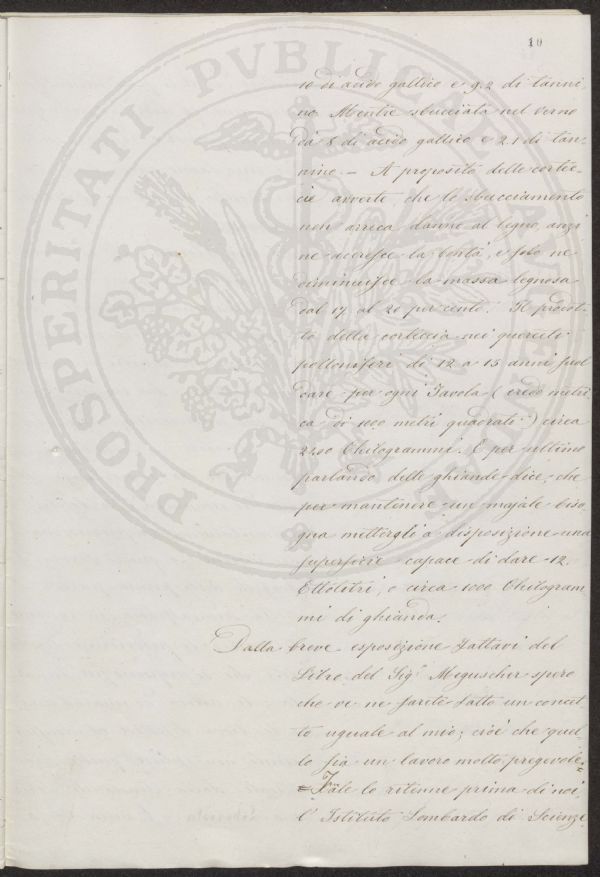 10
10 di acido gallico e 9.2 di tanni
no. Mentre sbucciata nel verno
dà 8 di acido gallico e 2.1 di tan-
nino. — A proposito delle cortec-
cie avverte, che lo sbucciamento
non arreca danno al legno, anzi
ne accresce la bontà, e solo ne
diminuisce la massa legnosa
dal 17 al 20 per cento. Il prodot-
to della corteccia nei querceti
polloniferi di 12 a 15 anni suol
dare per ogni Tavola (credo metri
ca di 1000 metri quadrati) circa
2400 Chilogrammi. E per ultimo
parlando delle ghiande dice, che
per mantenere un majale biso
gna mettergli a disposizione una
superficie capace di dare 12.
Ettolitri, o circa 1000 Chilogram
mi di ghianda.
Dalla breve esposizione fattavi del
Libro del Sigr Meguscher spero
che ve ne sarete fatto un concet
to uguale al mio; cioè che quel
lo sia un lavoro molto pregevole=
=Tale lo ritenne prima di noi,
l' Istituto Lombardo di Scienze
PROSPERITATI PVBLICAE